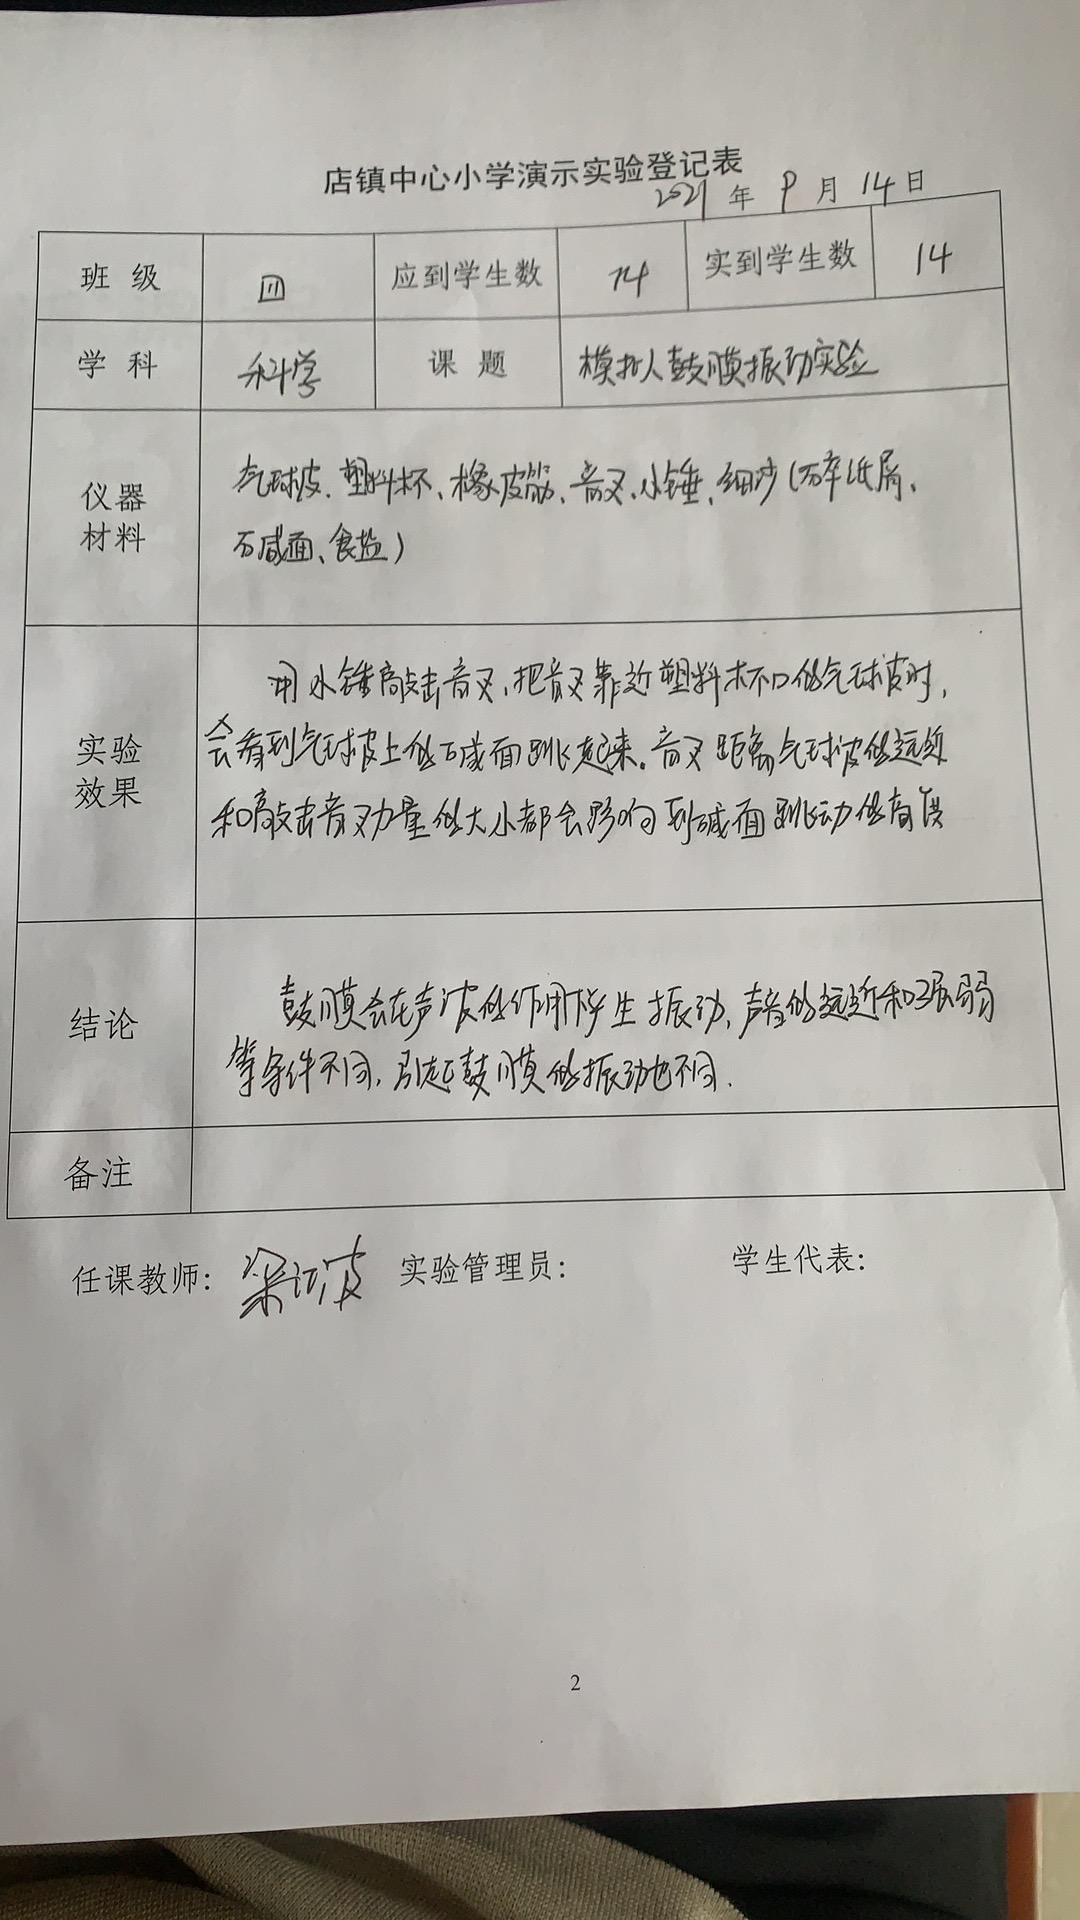 店镇中心小学演示实验登记表
2021年9月14日
班 级 四 应到学生数 14 实到学生数 14
学 科 科学 课 题 模拟人鼓膜振动实验
仪器材料
气球皮、塑料杯、橡皮筋、音叉、小锤、细沙(碎纸屑、
石碱面、食盐)
实验效果
用小锤敲击音叉,把音叉靠近塑料杯口的气球皮时,
会看到气球皮上的石碱面跳起来。音叉距离气球皮的远近
和敲击音叉力量的大小都会影响到碱面跳动的高低
结论
鼓膜会在声波的作用产生振动,声音的远近和强弱
等条件不同,引起鼓膜的振动也不同.
备注
任课教师: 梁 波 实验管理员: 学生代表:
2